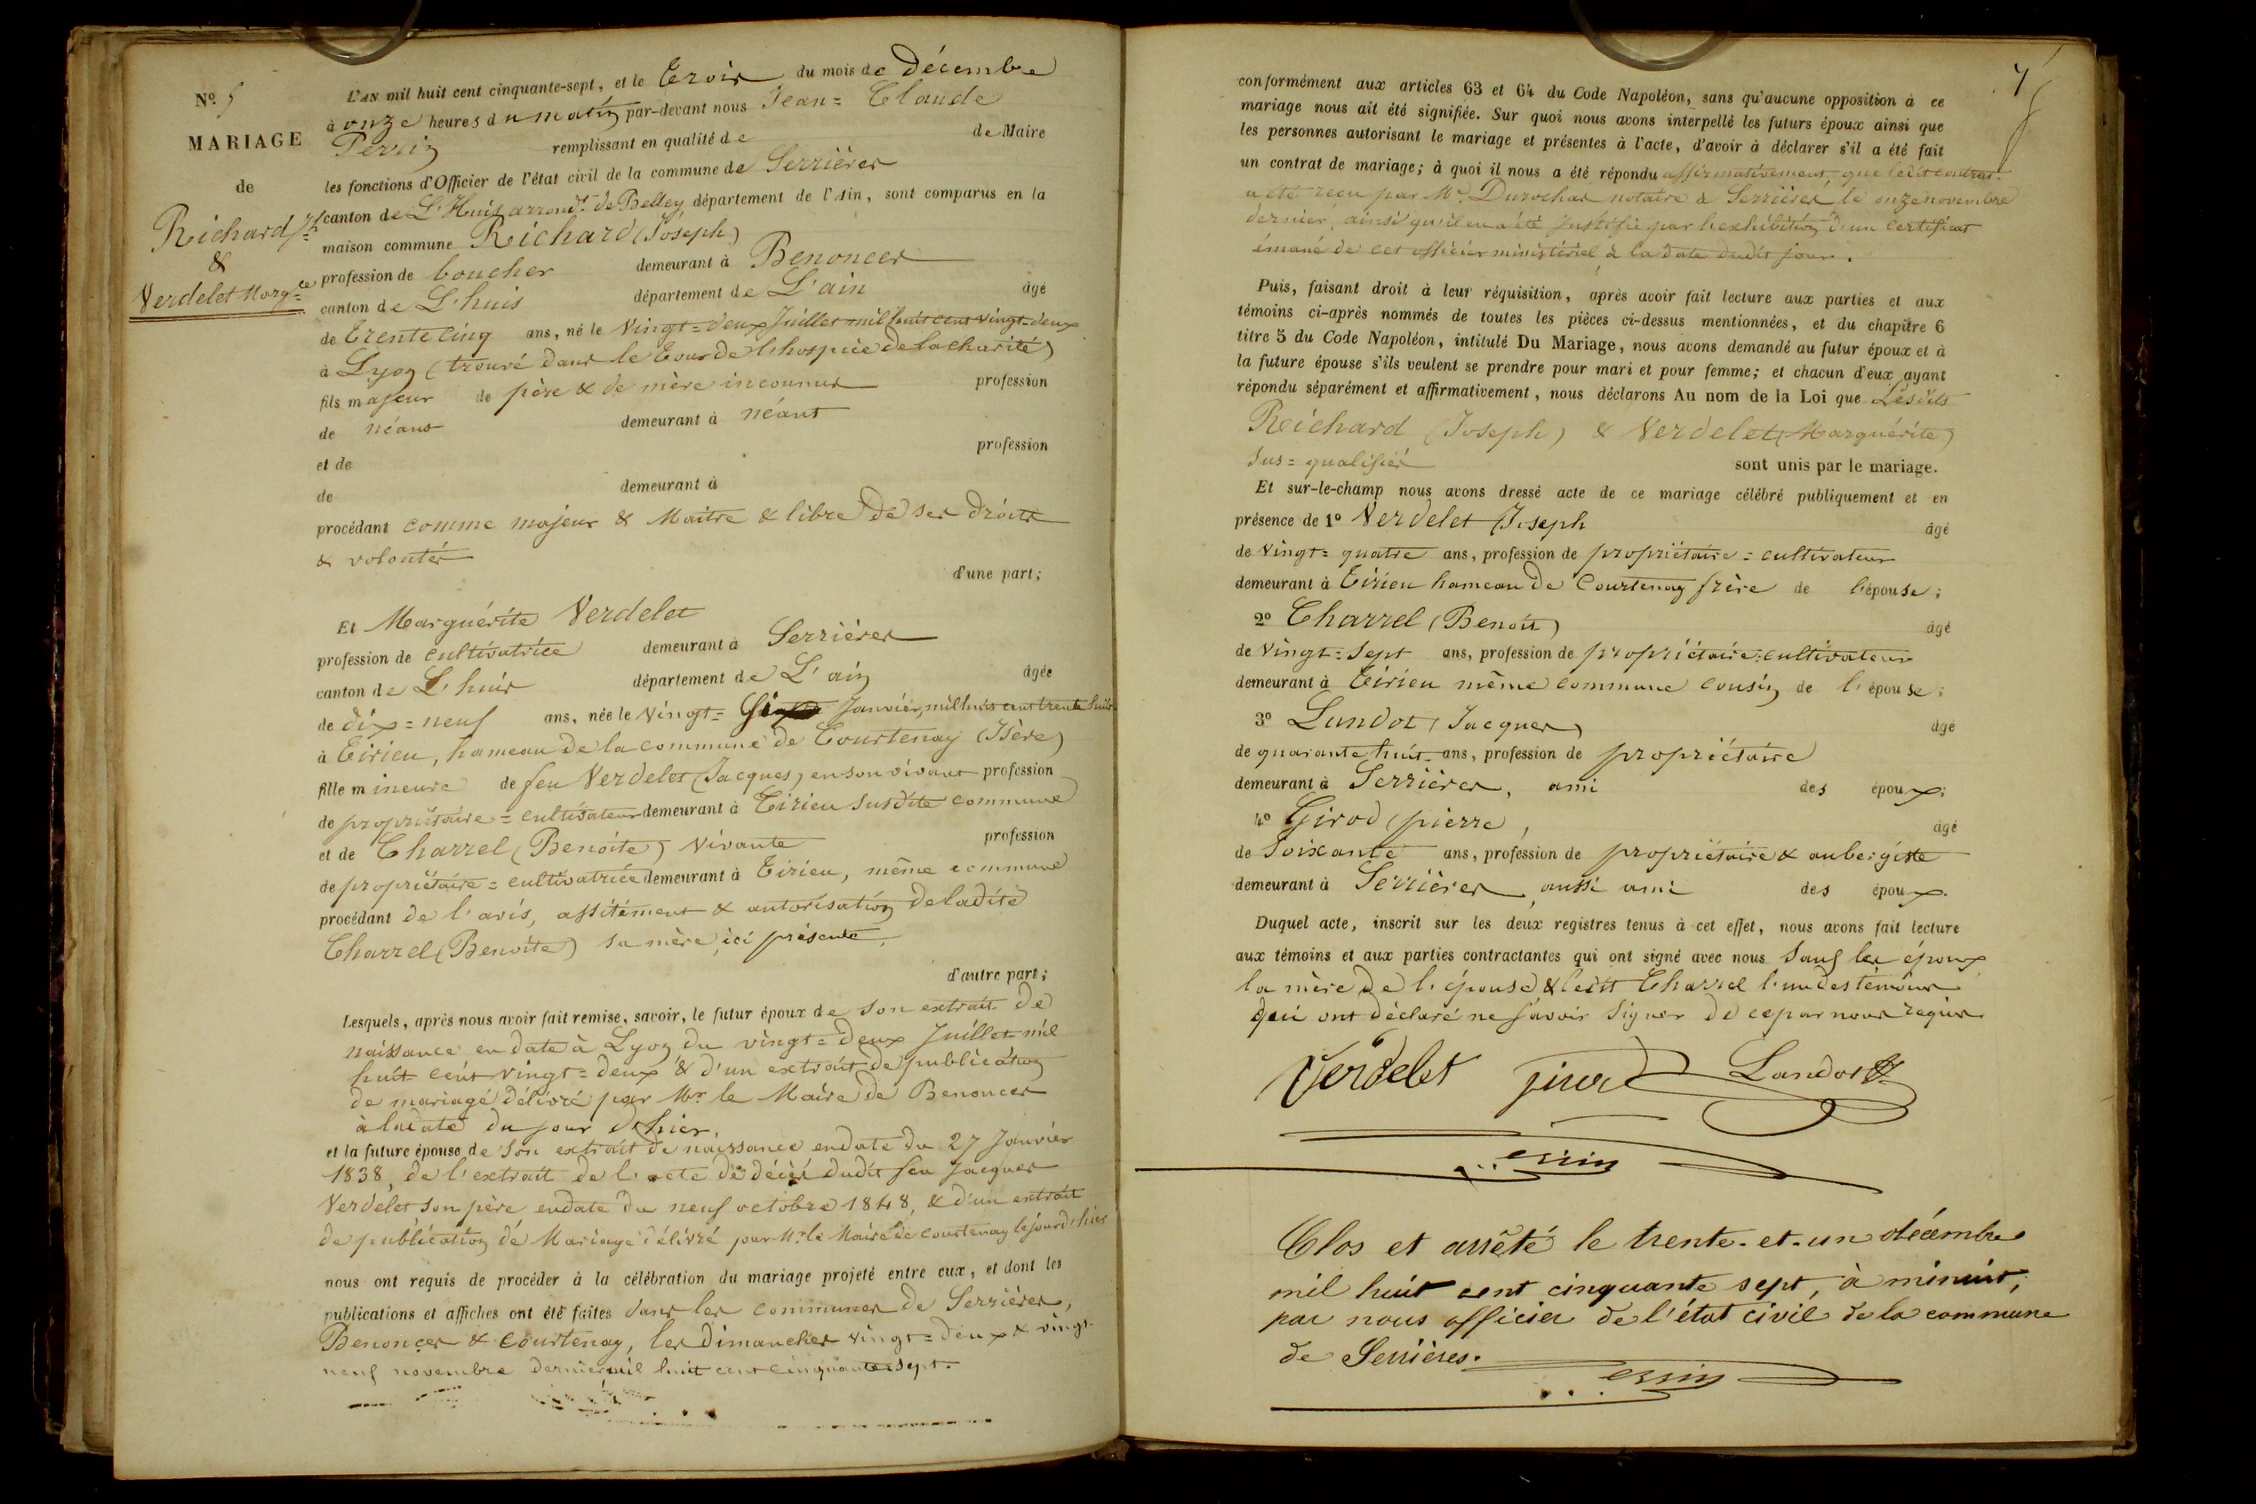 N.º 5
MARIAGE
de
Richard Jh
&
Verdelet Marg.te
L'AN mil huit cent cinquante-sept, et le Trois du mois de décembre
à onze heures du matin par-devant nous Jean = Claude
Perrin remplissant en qualité de de Maire
les fonctions d'Officier de l'état civil de la commune de Serrières
canton de L'Huis arrond.t de Belley département de l'Ain, sont comparus en la
maison commune Richard (Joseph)
profession de boucher demeurant à Benonces
canton de L'huis département de L'ain âgé
de trente cinq ans, né le vingt = deux Juillet mil huit cent vingt-deux
à Lyon (trouvé dans le tour de l'hospice de la charité)
fils majeur de père & de mère inconnus profession
de néant demeurant à néant
et de profession
de demeurant à
procédant comme majeur & Maître & libre de ses droits
& volontés
d'une part;
Et Marguérite Verdelet
profession de cultivatrice demeurant à Serrières
canton de L'huis département de L'ain âgée
de dix = neuf ans, née le vingt = Janvier, mil huit cent trente huit
à Tirieu, hameau de la commune de Courtenay (Isère)
fille mineure de feu Verdelet (Jacques) en son vivant profession
de propriétaire = cultivateur demeurant à Tirieu susdite commune
et de Charrel (Benoite) vivante profession
de propriétaire = cultivatrice demeurant à Tirieu, même commune
procédant de l'avis, assitément & autorisation de ladite
Charrel (Benoite) sa mère ici présente,
d'autre part;
Lesquels, après nous avoir fait remise, savoir, le futur époux de son extrait de
naissance en date à Lyon du vingt = deux Juillet mil
huit cent vingt = deux & d'un extrait de publication
de mariage délivré par Mr le Maire de Benonces
à la date du jour d'hier.
et la future épouse de son extrait de naissance en date du 27 Janvier
1838, de l'extrait de l'acte de décès dudit feu Jacques
Verdelet son père en date du neuf octobre 1848, & d'un extrait
de publication de Mariage délivré par Mr le Maire de Courtenay le jour d'hier
nous ont requis de procéder à la célébration du mariage projeté entre eux, et dont les
publications et affiches ont été faites dans les communes de Serrières,
Benonces & Courtenay, les dimanches vingt = deux & vingt
neuf novembre dernier mil huit cent cinquante sept.
7
conformément aux articles 63 et 64 du Code Napoléon, sans qu'aucune opposition à ce
mariage nous ait été signifiée. Sur quoi nous avons interpellé les futurs époux ainsi que
les personnes autorisant le mariage et présentes à l'acte, d'avoir à déclarer s'il a été fait
un contrat de mariage; à quoi il nous a été répondu affirmativement, que ledit contrat
a été reçu par Me Durochat notaire à Serrières le onze novembre
dernier, ainsi qu'il en a été justifié par l'exhibition d'un certificat
émané de cet officier ministériel à la date dudit jour.
Puis, faisant droit à leur réquisition, après avoir fait lecture aux parties et aux
témoins ci-après nommés de toutes les pièces ci-dessus mentionnées, et du chapitre 6
titre 5 du Code Napoléon, intitulé Du Mariage, nous avons demandé au futur époux et à
la future épouse s'ils veulent se prendre pour mari et pour femme; et chacun d'eux ayant
répondu séparément et affirmativement, nous déclarons Au nom de la Loi que Lesdits
Richard (Joseph) & Verdelet (Marguérite)
sus = qualifiés sont unis par le mariage.
Et sur-le-champ nous avons dressé acte de ce mariage célébré publiquement et en
présence de 1º Verdelet Joseph âgé
de vingt = quatre ans, profession de propriétaire = cultivateur
demeurant à Tirieu hameau de Courtenay frère de l'épouse;
2º Charrel (Benoit) âgé
de vingt = sept ans, profession de propriétaire = cultivateur
demeurant à Tirieu même commune cousin de l'épouse;
3º Landot (Jacques) âgé
de quarante huit ans, profession de propriétaire
demeurant à Serrières, ami des époux;
4º Girod (pierre) âgé
de soixante ans, profession de propriétaire & aubergiste
demeurant à Serrières, aussi ami des époux.
Duquel acte, inscrit sur les deux registres tenus à cet effet, nous avons fait lecture
aux témoins et aux parties contractantes qui ont signé avec nous sauf les époux
la mère de l'épouse & ledit Charrel l'un des témoins
qui ont déclaré ne savoir signer de ce par nous requis
Verdelet girod Landot
Perrin
Clos et arrêté le trente-et-un décembre
mil huit cent cinquante sept, à minuit,
par nous officier de l'état civil de la commune
de Serrières.
Perrin